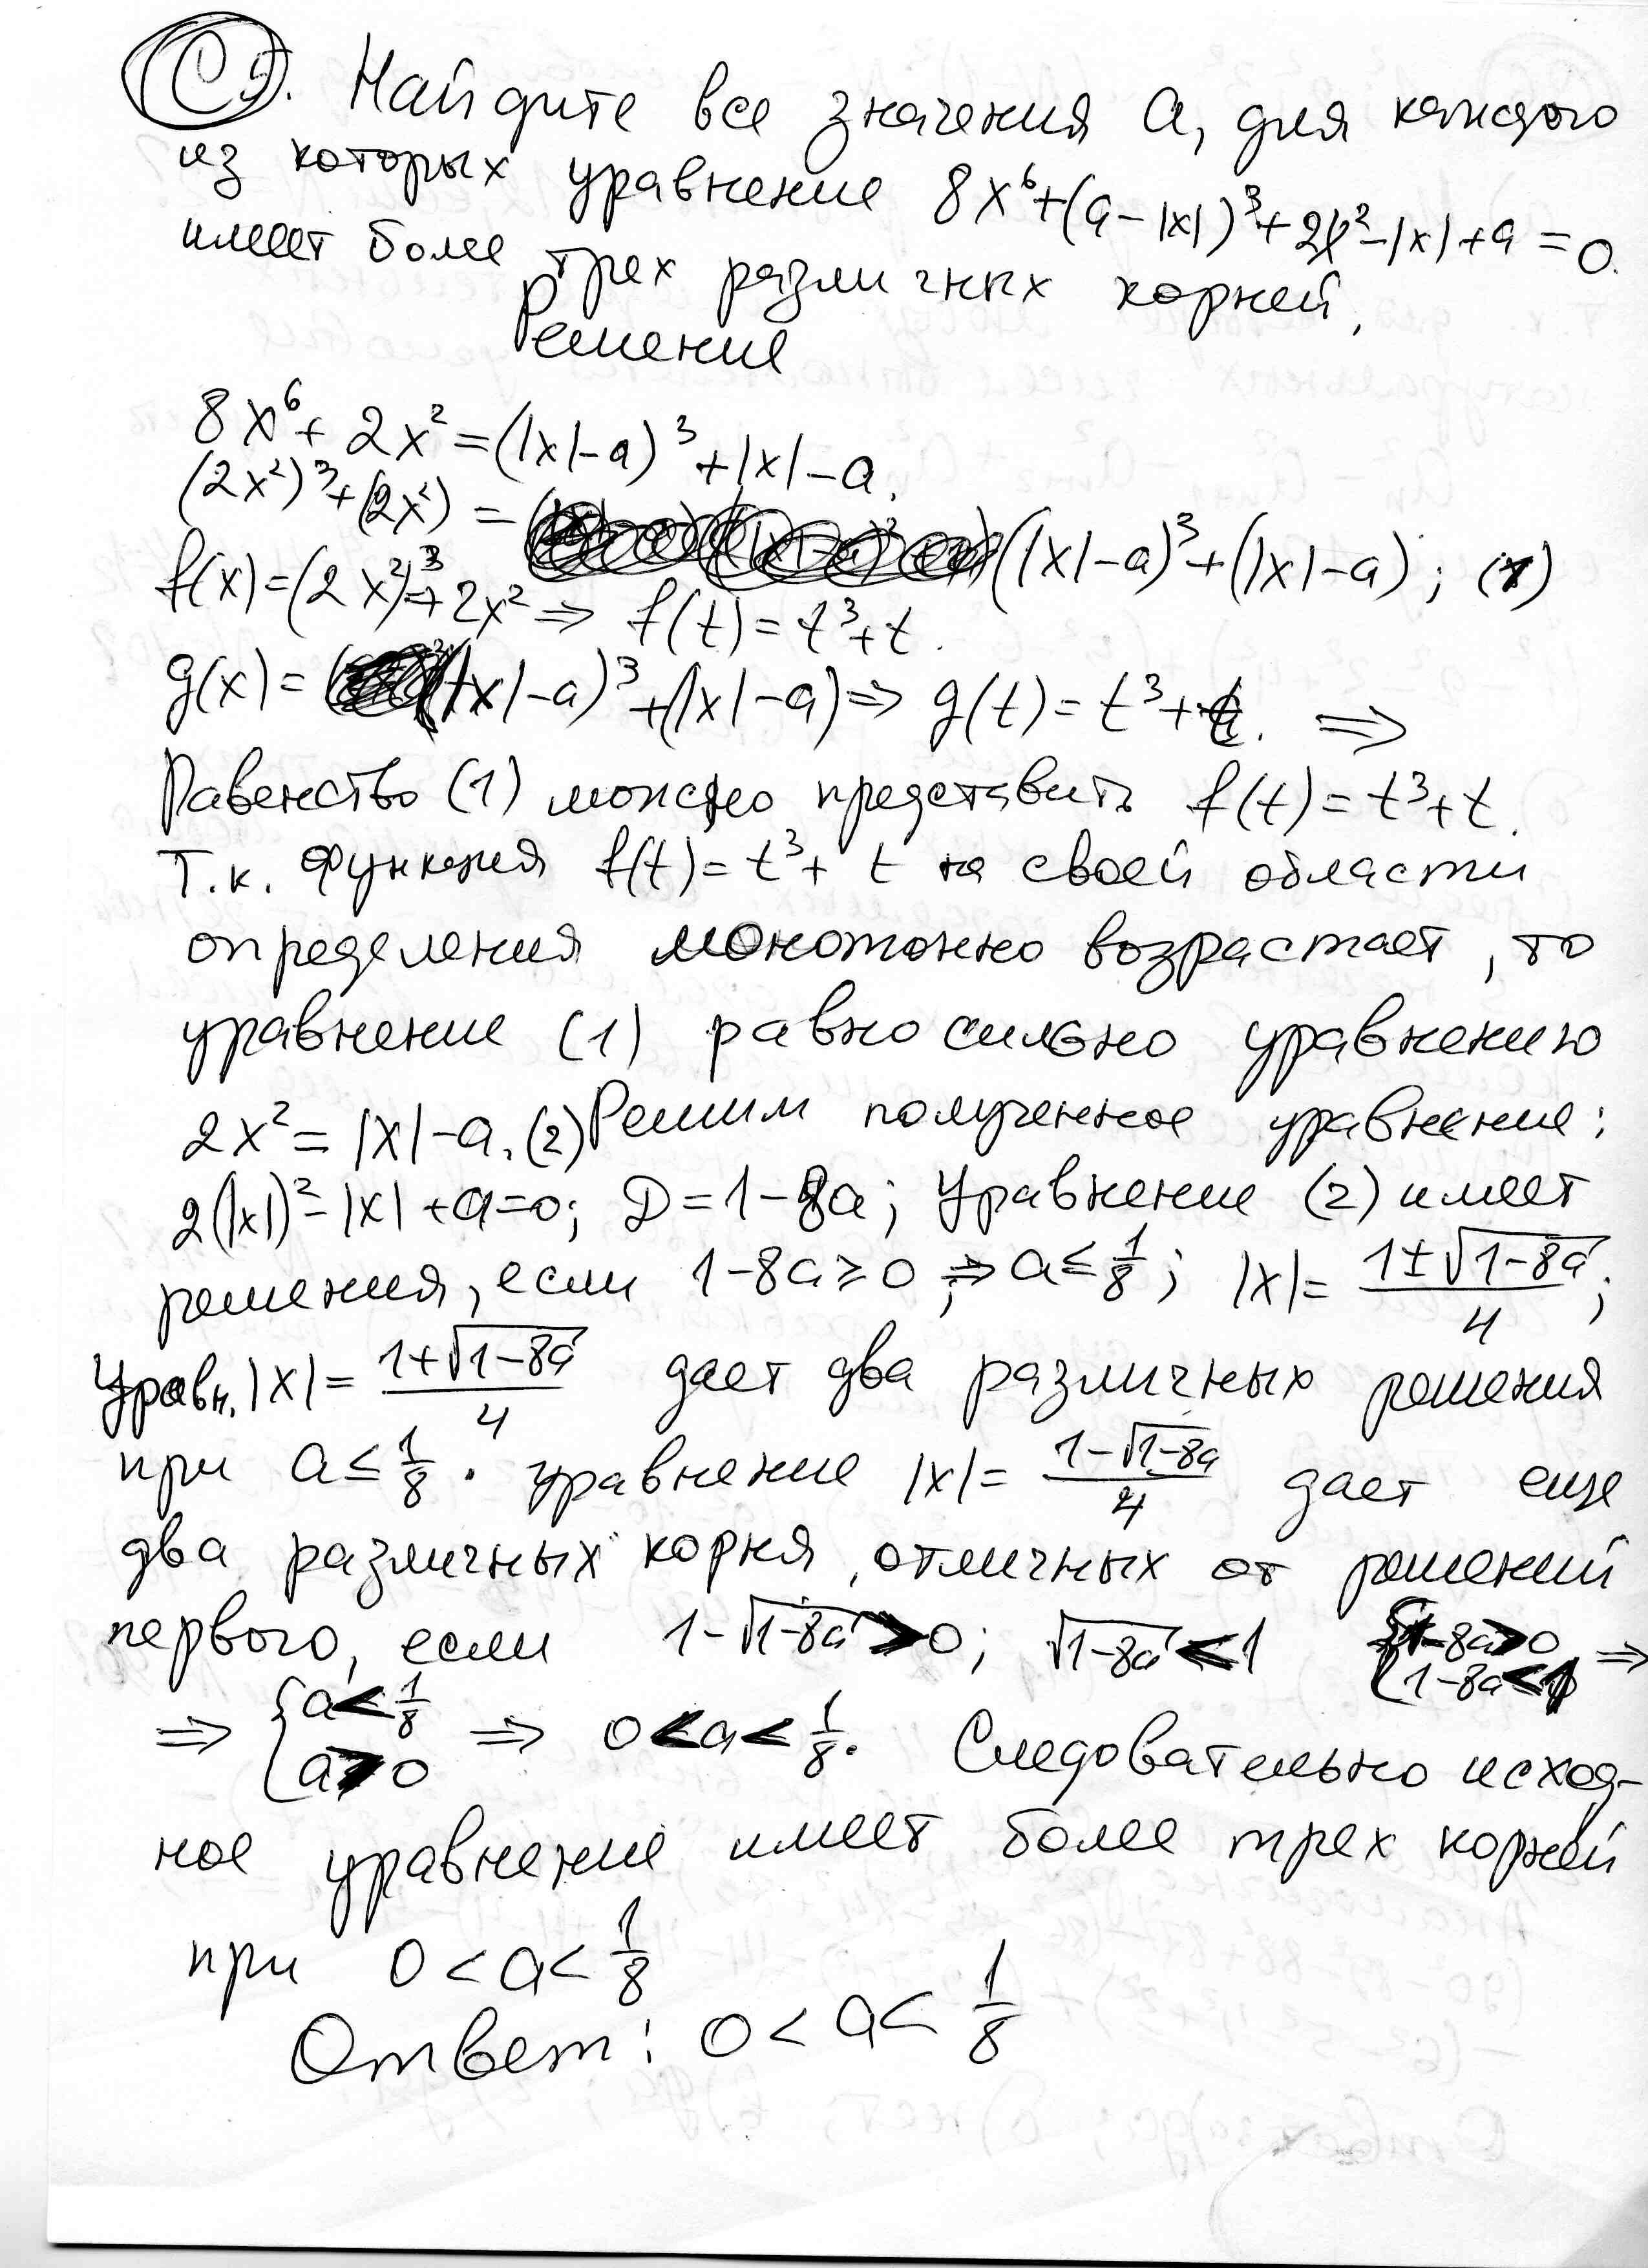 С5. Найдите все значения a, для каждого
из которых уравнение 8x⁶+(a-|x|)³+2x²-|x|+a=0.
имеет более трех различных корней,
Решение
8x⁶+2x²=(|x|-a)³+|x|-a.
(2x²)³+(2x²)=(|x|-a)³+(|x|-a); (1)
f(x)=(2x²)³+2x² ⇒ f(t)=t³+t.
g(x)=(|x|-a)³+(|x|-a) ⇒ g(t)=t³+t. ⇒
Равенство (1) можно представить f(t)=t³+t.
Т.к. функция f(t)=t³+t на своей области
определения монотонно возрастает, то
уравнение (1) равносильно уравнению
2x²=|x|-a. (2) Решим полученное уравнение:
2(|x|)²-|x|+a=0; D=1-8a; Уравнение (2) имеет
решения, если 1-8a≥0; ⇒ a≤1/8; |x|=(1±√(1-8a))/4;
Уравн. |x|=(1+√(1-8a))/4 дает два различных решения
при a≤1/8. уравнение |x|=(1-√(1-8a))/4 дает еще
два различных корня, отличных от решений
первого, если 1-√(1-8a)>0; √(1-8a)<1 {1-8a>0 {1-8a<1 ⇒
⇒ {a<1/8 {a>0 ⇒ 0<a<1/8. Следовательно исход-
ное уравнение имеет более трех корней
при 0<a<1/8
Ответ: 0<a<1/8